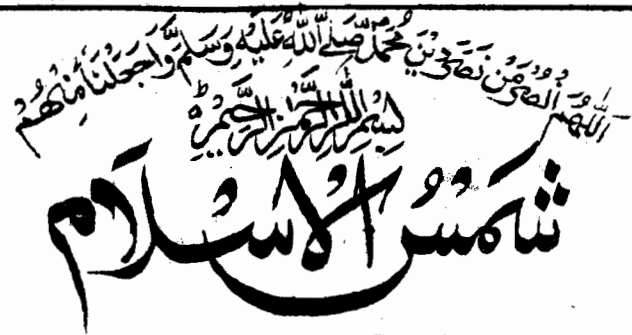 اَللّٰهُمَّ انْصُرْ مَنْ نَصَرَ دِيْنَ مُحَمَّدٍ صَلَّے اللّٰهُ عَلَيْهِ وَسَلَّمَ وَاجْعَلْنَا مِنْهُمْ
بِسْمِ اللّٰهِ الرَّحْمٰنِ الرَّحِيْمِ ط
شَمْسُ الْاِسْلَام